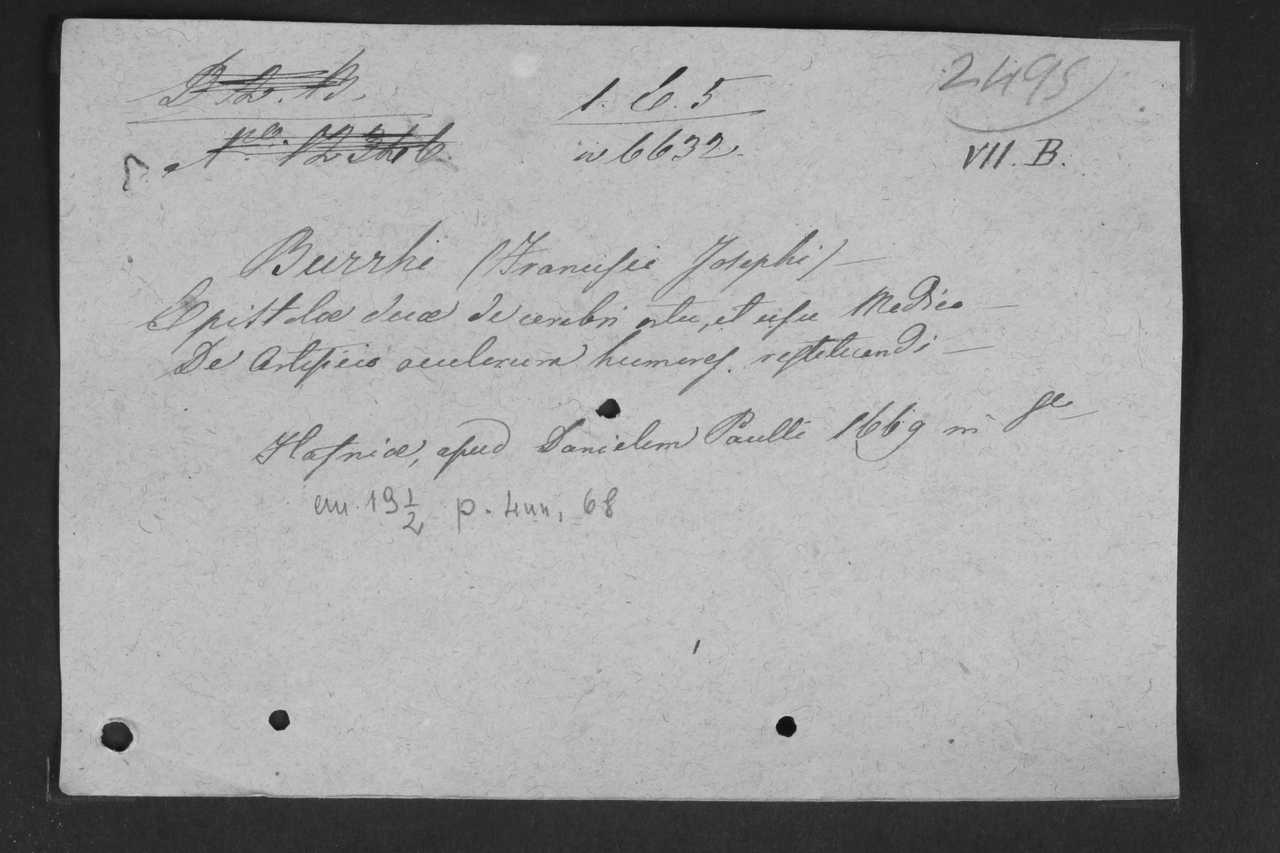 1. C. 5
2495
6632.
VII. B.
Burrhi (Francisci Josephi)
Epistolæ duæ de cerebri ortu, et usu Medico
De Artificio oculorum humores restituendi
Hafniæ, apud Danielem Paulli 1669 in 8º
cm. 19 1/2 p. 4nn, 68